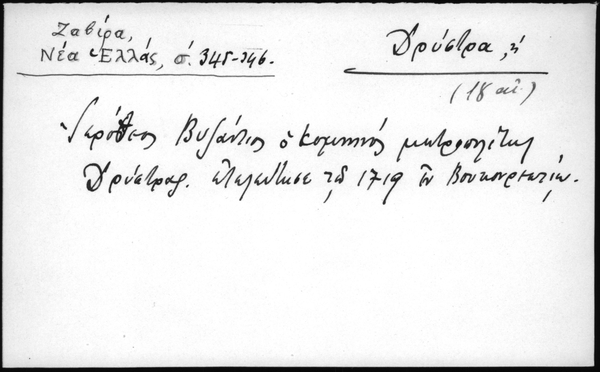 Ζαβίρα,
Νέα Ἑλλάς, σ. 345-346.
Δρύστρα, ἡ
(18 αἰ.)
Ἱερόθεος Βυζάντιος ὁ Κομνηνός μητροπολίτης
Δρύστρας. ἐτελεύτησε τῷ 1719 ἐν Βουκουρεστίῳ.